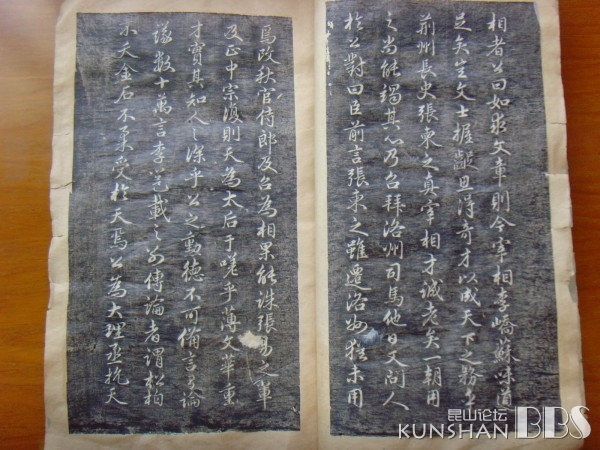 相者公曰如求文章則今宰相李嶠蘇味道
足矣豈文士握齪思得奇才以成天下之務乎
荊州長史張柬之真宰相才誠老矣一朝用
之尚能竭其心乃召拜洛州司馬他日又問人
於公對曰臣前言張柬之雖遷洛州猶未用
焉改秋官侍郎及召為相果能誅張易之輩
反正中宗復則天為太后于嗟乎薄文華重
才實其知人之深乎公之勳德不可備言有論
議數十萬言李邕載之別傳論者謂松柏
不夭金石不柔受於天焉公為大理丞抗天
昆山论坛
KUNSHAN BBS